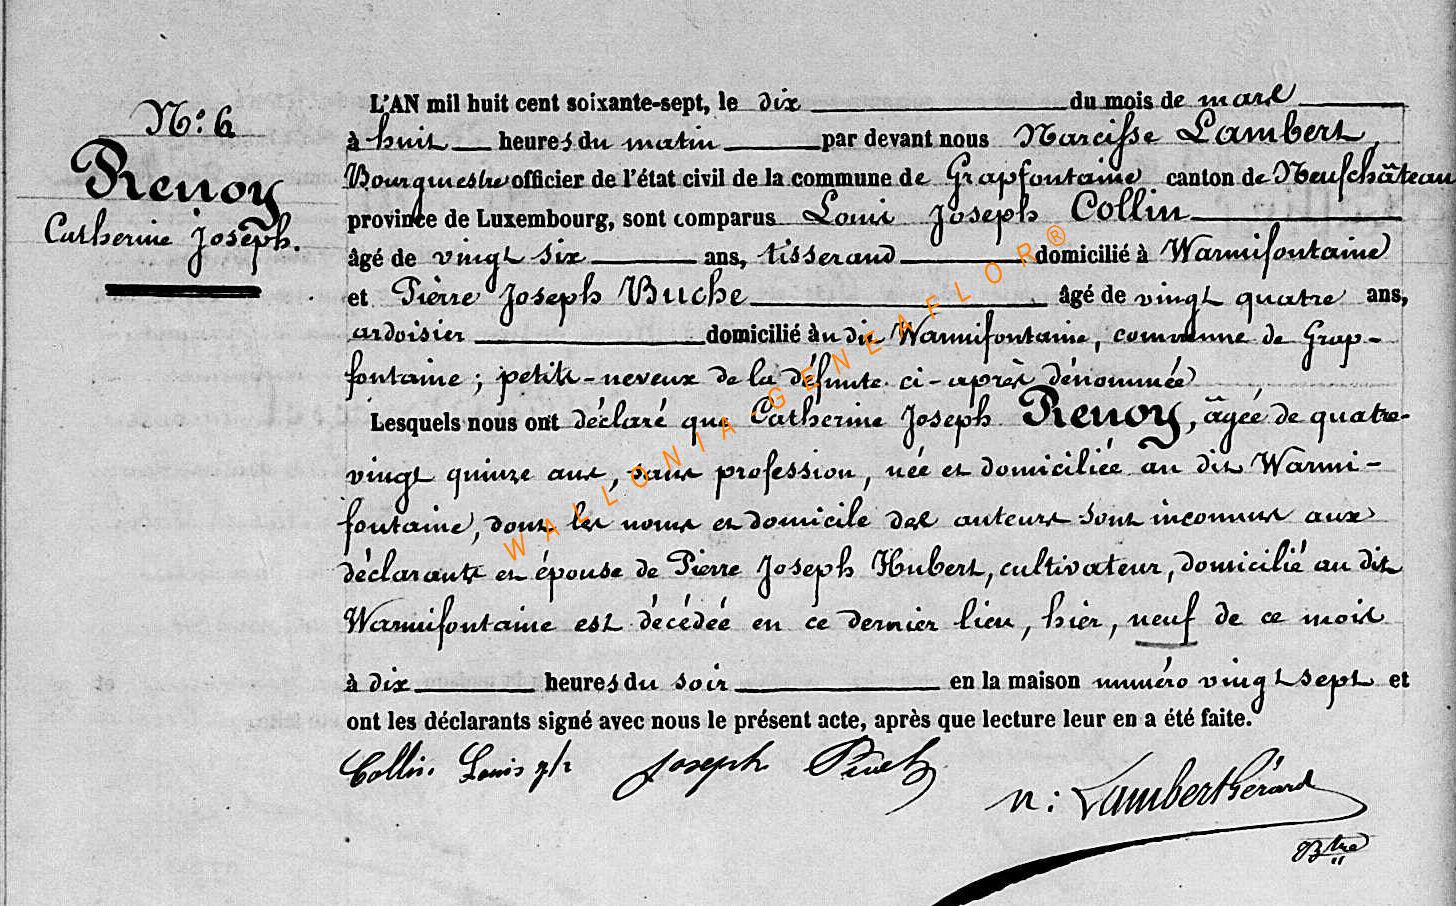 N.º 6
Renoy
Catherine Joseph.
L'AN mil huit cent soixante-sept, le dix du mois de mars
à huit heures du matin par devant nous Narcisse Lambert,
Bourgmestre officier de l'état civil de la commune de Grapfontaine canton de Neufchâteau
province de Luxembourg, sont comparus Louis Joseph Collin
âgé de vingt six ans, tisserand domicilié à Warmifontaine
et Pierre Joseph Buche âgé de vingt quatre ans,
ardoisier domicilié au dit Warmifontaine, commune de Grap-
fontaine; petits-neveux de la défunte ci-après dénommée
Lesquels nous ont déclaré que Catherine Joseph Renoy, âgée de quatre-
vingt quinze ans, sans profession, née et domiciliée au dit Warmi-
fontaine, dont les noms et domicile des auteurs sont inconnus aux
déclarants et épouse de Pierre Joseph Hubert, cultivateur, domicilié au dit
Warmifontaine est décédée en ce dernier lieu, hier, neuf de ce mois
à dix heures du soir en la maison numéro vingt sept et
ont les déclarants signé avec nous le présent acte, après que lecture leur en a été faite.
Collin Louis jph Joseph
N: Lambert Gérard
Btre
WALLONIA-GENEAFLOR®